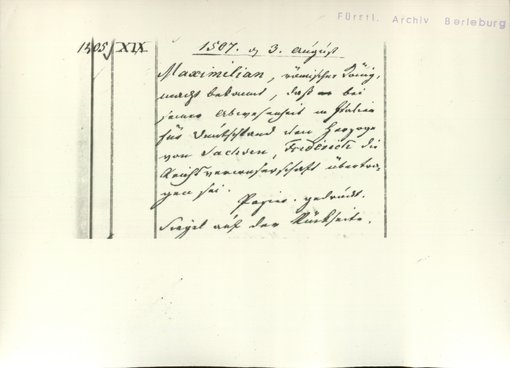 Fürstl. Archiv Berleburg
1405 XIX. 1507. 3. August
Maximilian, römischer König,
macht bekannt, daß er bei
seiner Abwesenheit in Italien
für Deutschland den Herzoge
von Sachsen, Friderich die
Reichsverweserschaft übertra-
gen sei.
Papier. gedruckt.
Siegel auf der Rückseite.